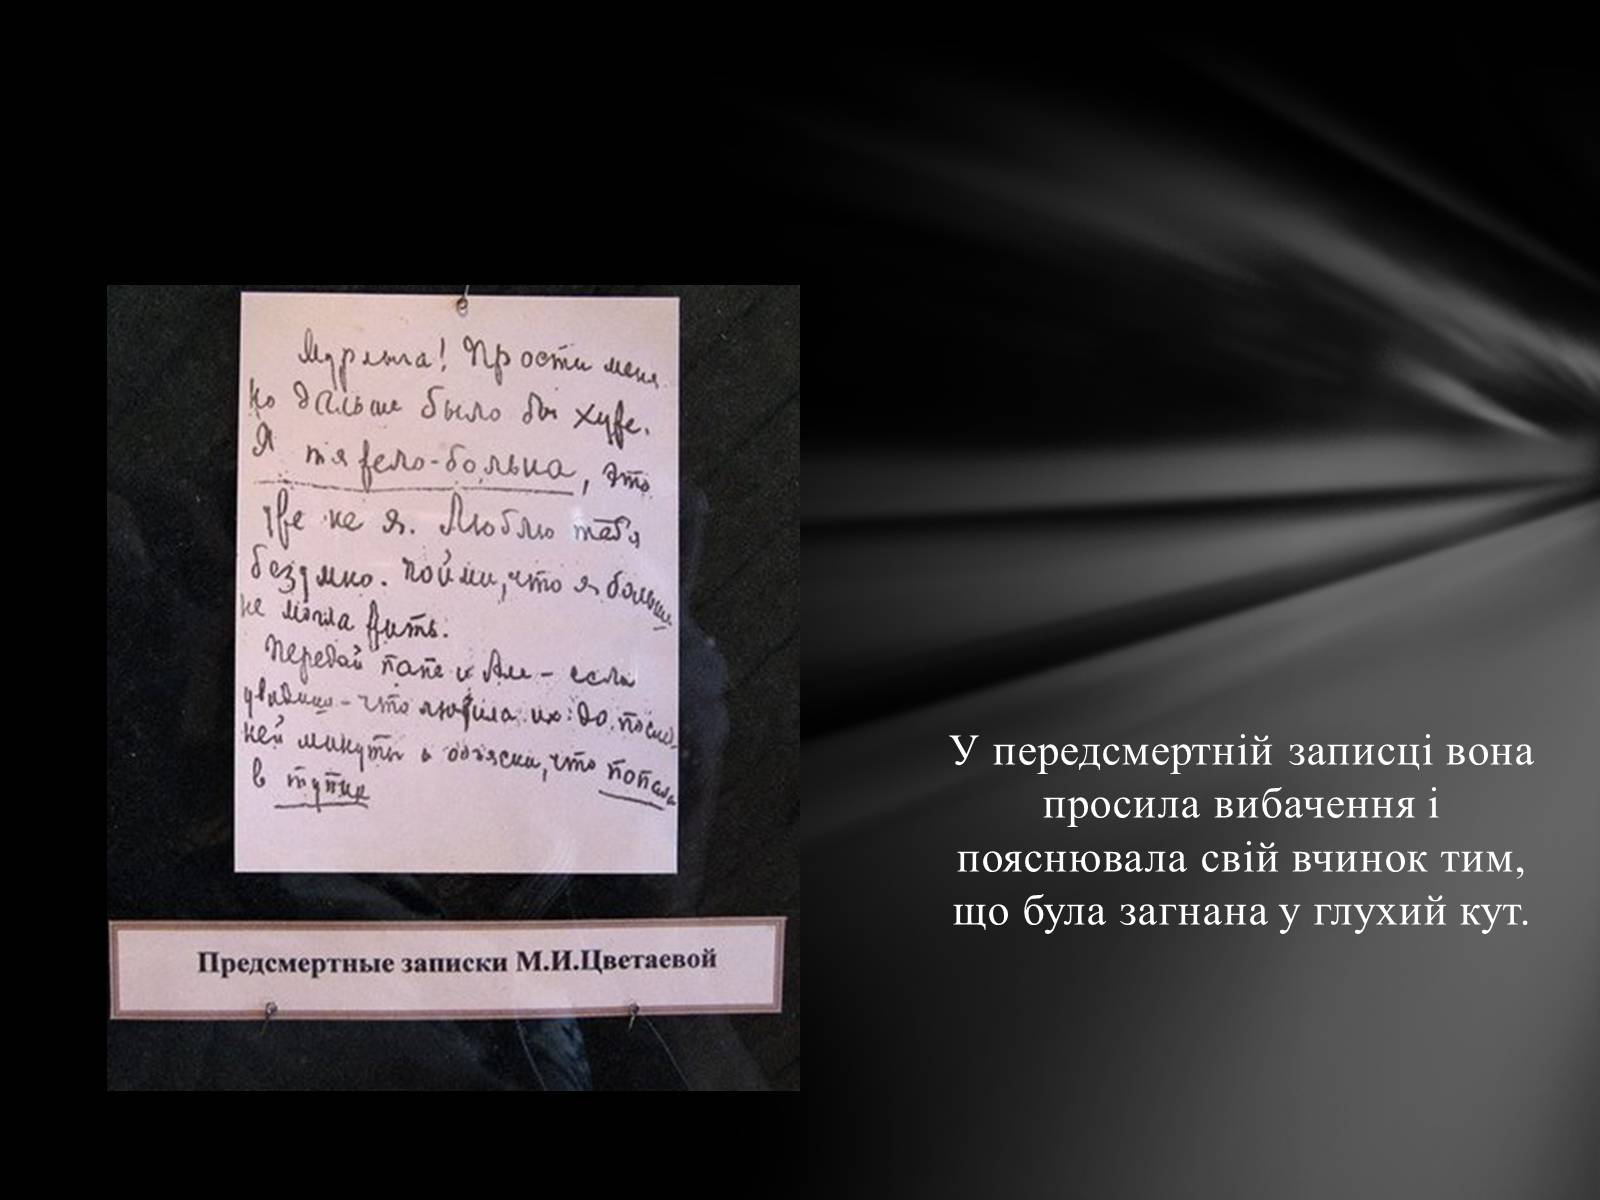 Мурлыга! Прости меня
Но дальше было бы хуже.
Я тяжело-больна, это
уже не я. Люблю тебя
безумно. Пойми, что я больше
не могла жить.
Передай папе и Але – если
увидишь – что любила их до послед-
ней минуты и объясни, что попала
в тупик
Предсмертные записки М.И.Цветаевой
У передсмертній записці вона
просила вибачення і
пояснювала свій вчинок тим,
що була загнана у глухий кут.